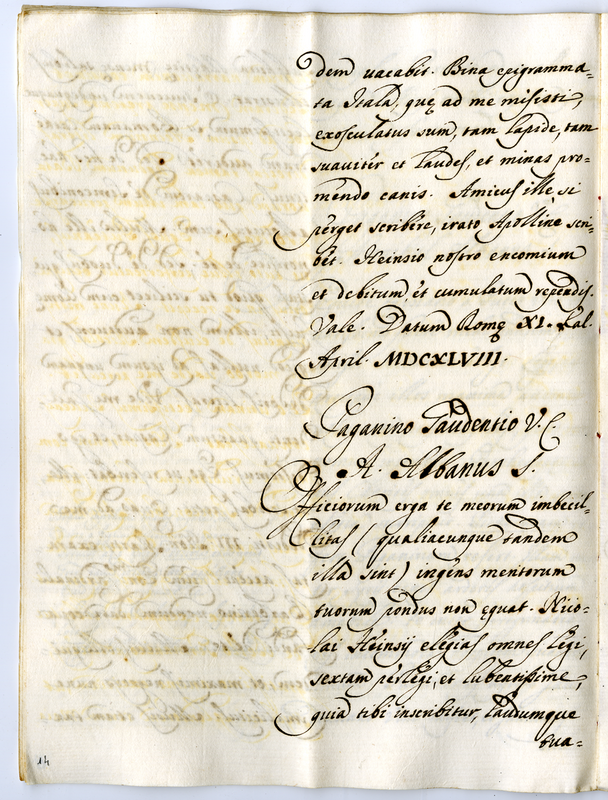 dem uacabit. Bina epigramma=
ta Itala, quę ad me misisti,
exosculatus sum, tam lapide, tam
suauitèr et laudes, et minas pro=
mendo canis. Amicus ille si
pèrget scribère, irato Apolline scri=
bèt. Heinsio nostro encomium
et debitum èt cumulatum rependis.
Vale. Datum Romę XI. Kal.
April. MDCXLVIII.
Paganino Gaudentio V. C.
A. Albanus S.
Officiorum erga te meorum imbecil=
litas (qualiacunque tandem
illa sint) ingèns meritorum
tuorum pondus non ęquat. Nico=
lai Heinsij elegias omnes legi,
sextam pèrlegi, et lubentissime,
quia tibi inscribitur, laudumque
tua=
14